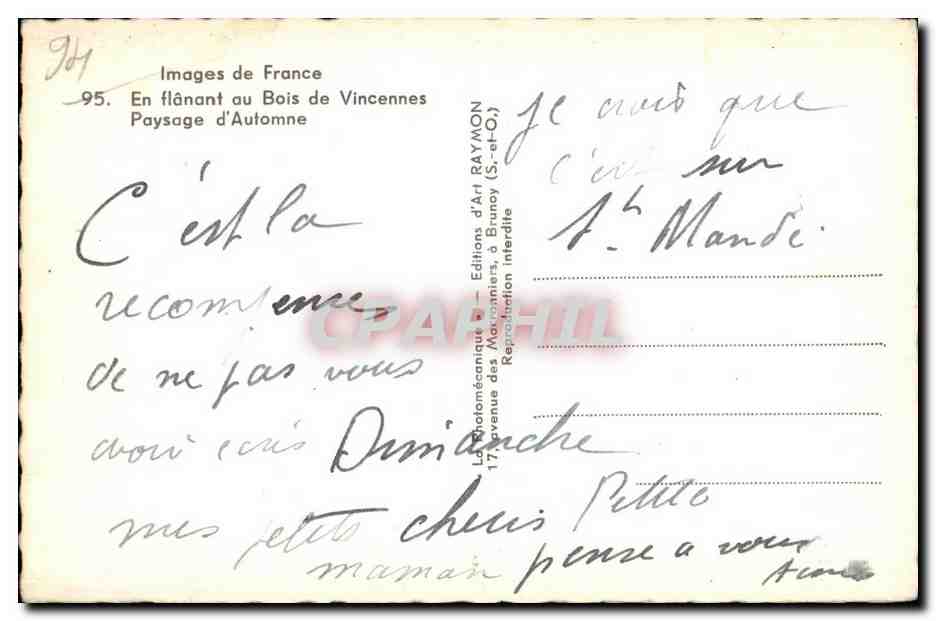 94
Images de France
95. En flânant au Bois de Vincennes
Paysage d'Automne
C'est la
recompenses
de ne pas vous
avoir ecris Dimanche
mes petits cheris Petite
maman pense a vous
La Photomécanique. — Editions d'Art RAYMON
17, avenue des Marronniers, à Brunoy (S.-et-O.)
Reproduction interdite
je crois que
c'est sur
St. Mandé.
CPAPHIL